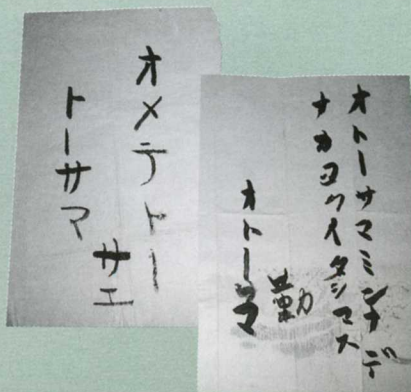 オメテトー
トーサマ
サエ
オトーサマミンナデ
ナカヨクイタシマス
勤
オトーサマ